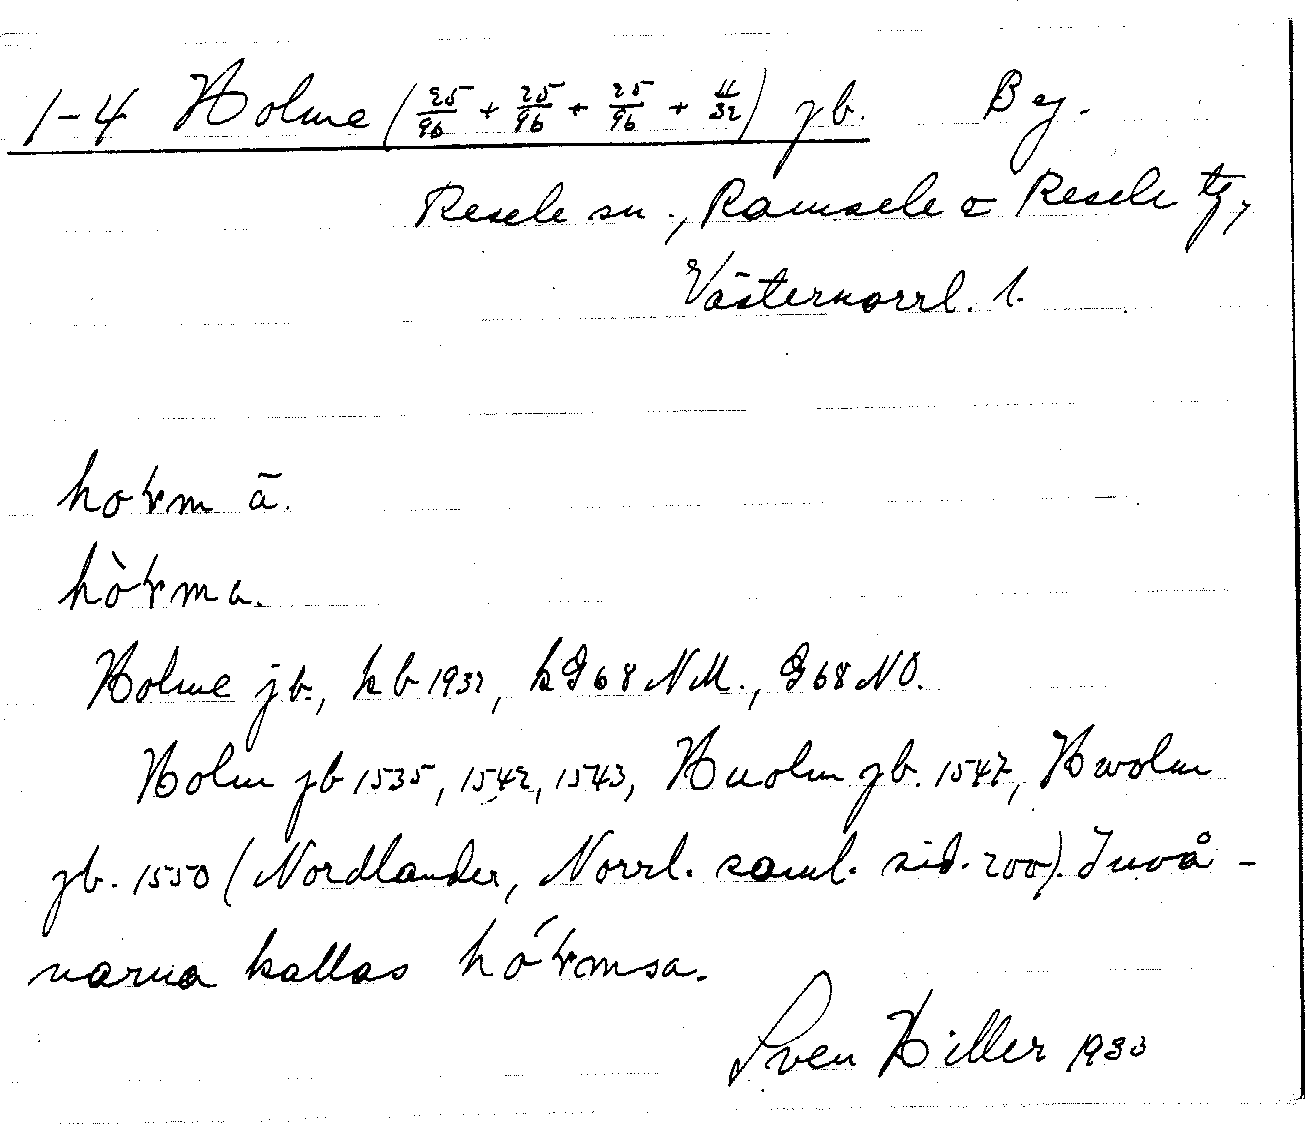 1-4 Holme (25/96 + 25/96 + 25/96 + 11/32) jb. By.
Resele sn., Ramsele o Resele tg,
Västernorrl. l.
hoɽm ä.
hòɽma.
Holme jb., kb 1932, kG68NM., G68NO.
Holm jb 1535, 1542, 1543, Huolm jb. 1547, Hwolm
jb. 1550 (Nordlander, Norrl. saml. sid. 200). Invå-
narna kallas hóɽmsa.
Sven Hiller 1933